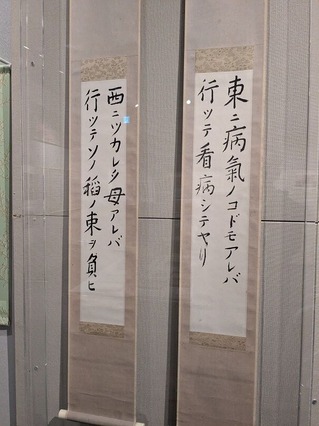 東ニ病氣ノコドモアレバ
行ツテ看病シテヤリ
西ニツカレタ母アレバ
行ツテソノ稲ノ束ヲ負ヒ